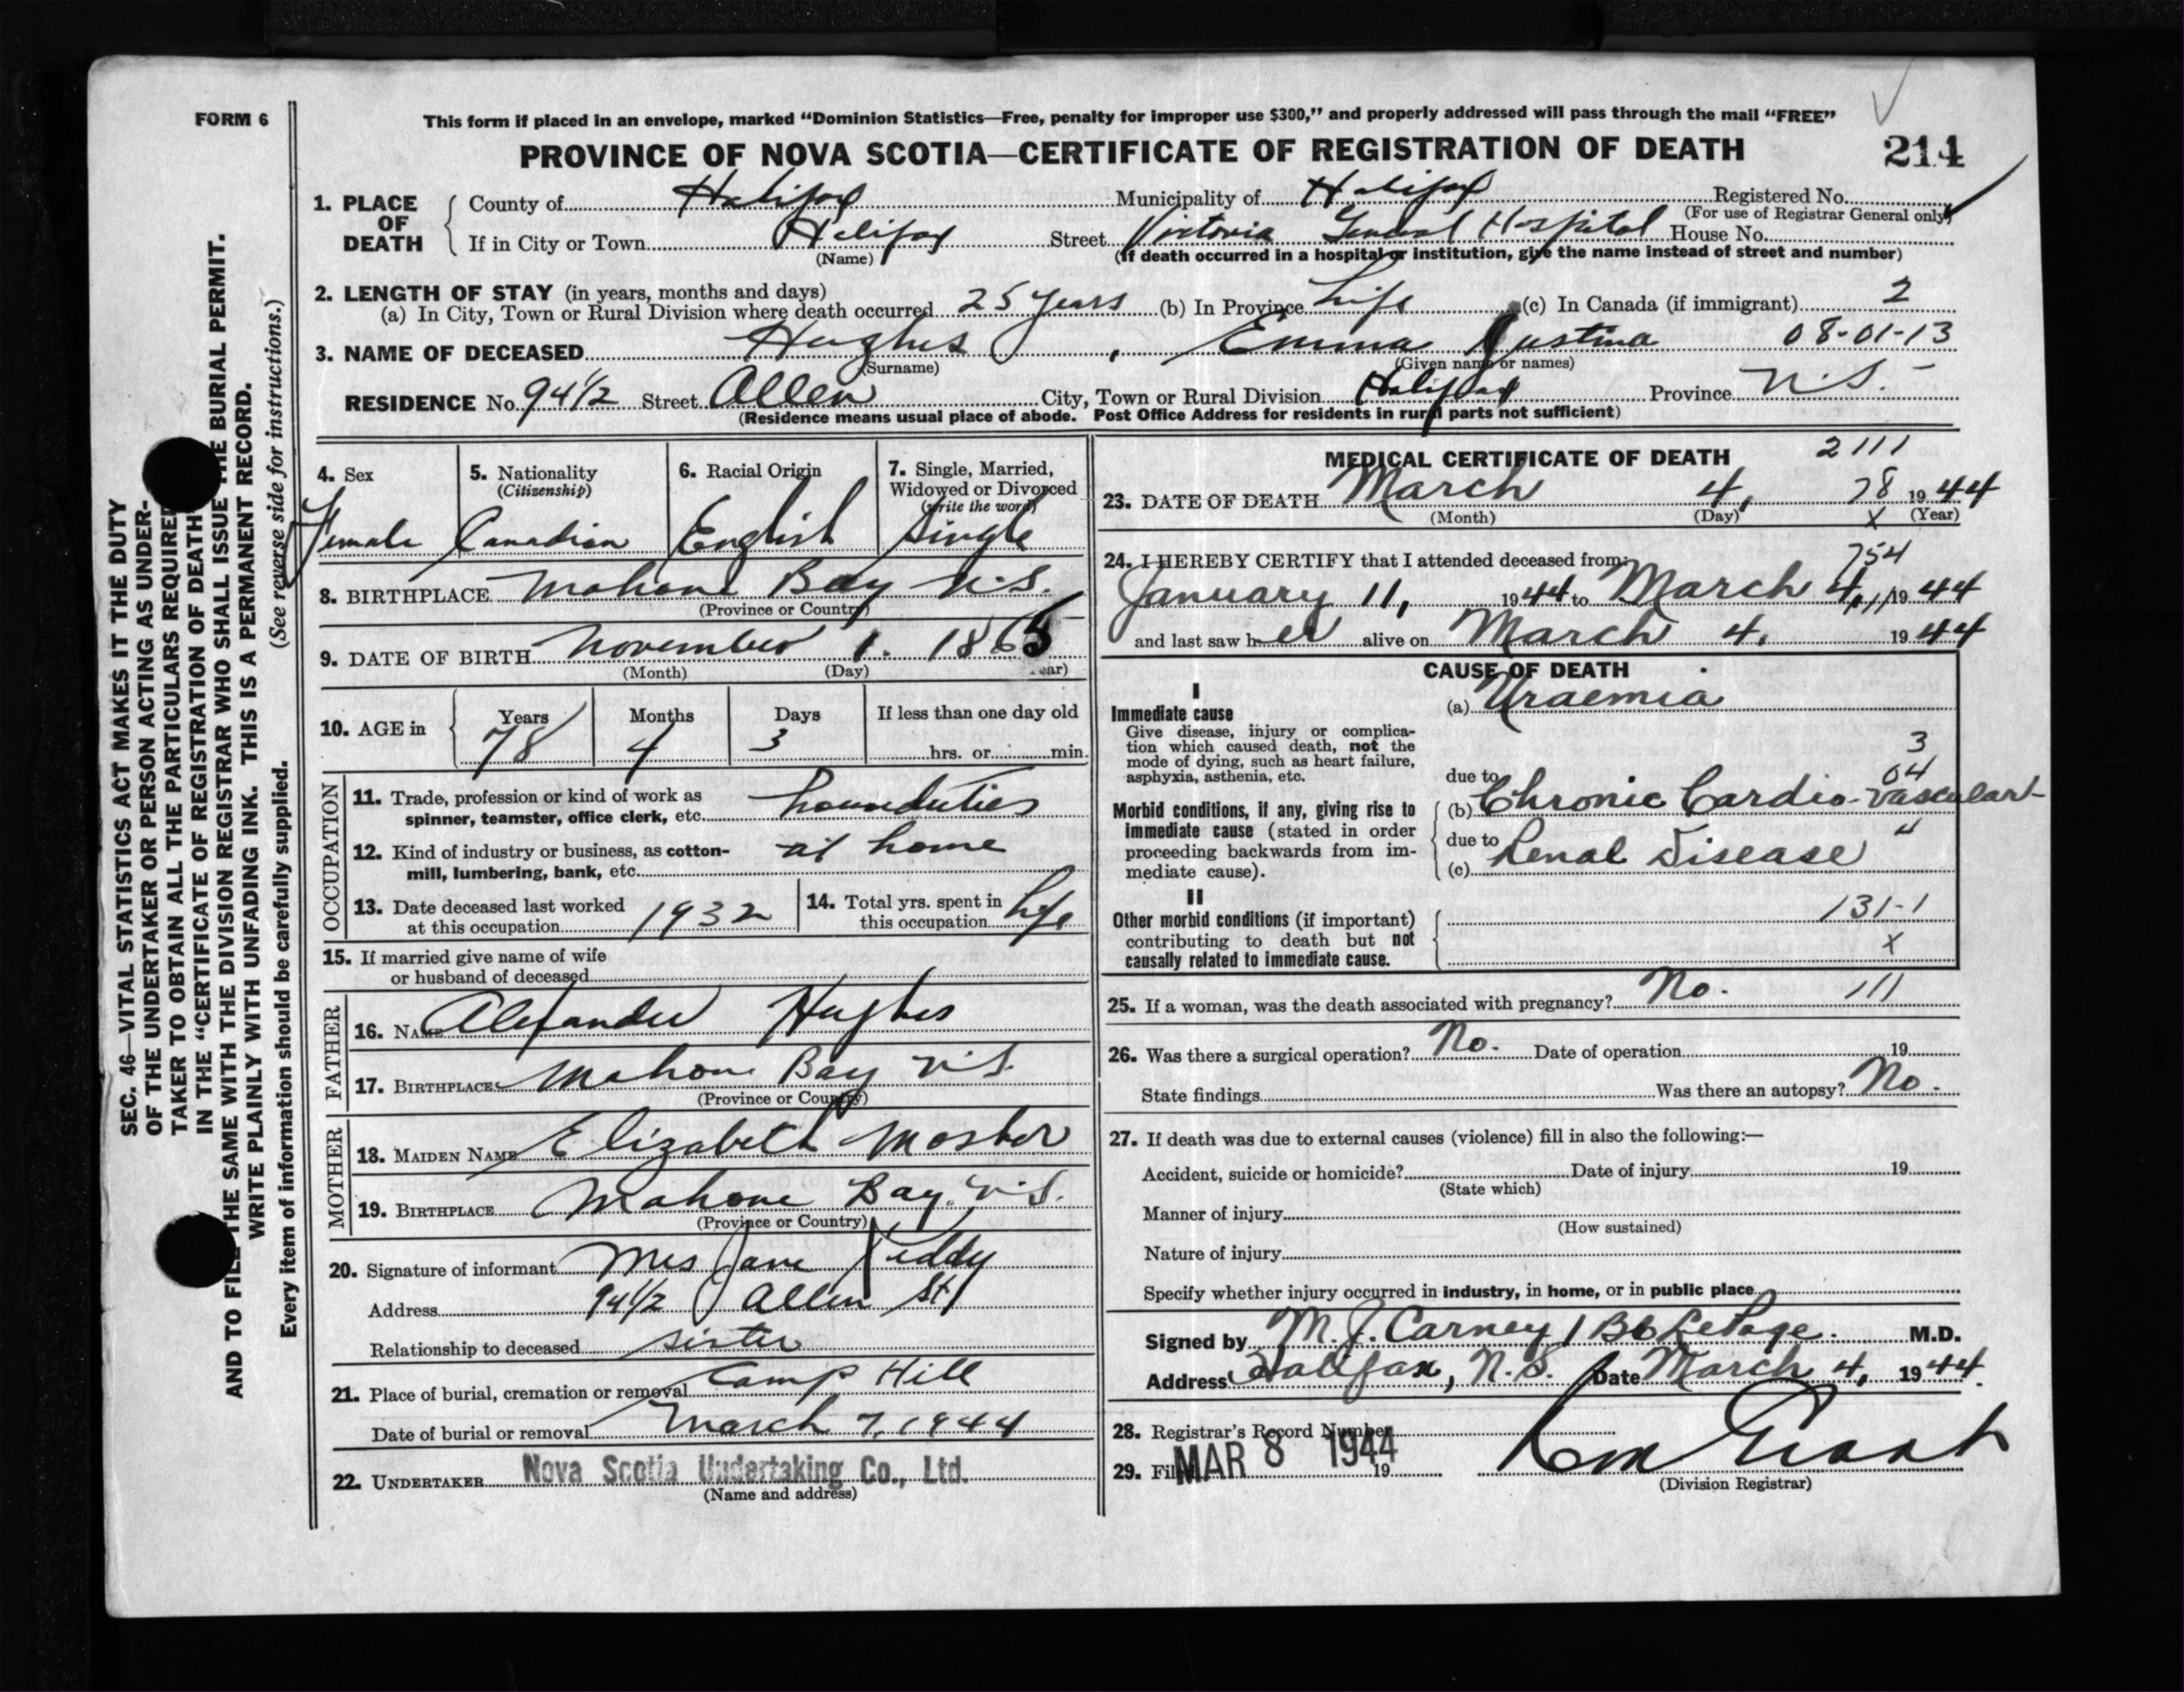 FORM 6
This form if placed in an envelope, marked “Dominion Statistics—Free, penalty for improper use $300,” and properly addressed will pass through the mail “FREE”
PROVINCE OF NOVA SCOTIA—CERTIFICATE OF REGISTRATION OF DEATH
214
1. PLACE OF DEATH
County of Halifax Municipality of Halifax Registered No.
(For use of Registrar General only)
If in City or Town Halifax Street Victoria General Hospital House No.
(Name) (If death occurred in a hospital or institution, give the name instead of street and number)
2. LENGTH OF STAY (in years, months and days)
(a) In City, Town or Rural Division where death occurred 25 years (b) In Province Life (c) In Canada (if immigrant) 2
3. NAME OF DECEASED Hughes, Emma Justina 08-01-13
(Surname) (Given name or names)
RESIDENCE No. 94 1/2 Street Allen City, Town or Rural Division Halifax Province N.S. -
(Residence means usual place of abode. Post Office Address for residents in rural parts not sufficient)
4. Sex 5. Nationality (Citizenship) 6. Racial Origin 7. Single, Married, Widowed or Divorced (write the word)
Female Canadian English Single
8. BIRTHPLACE Mahone Bay N.S.
(Province or Country)
9. DATE OF BIRTH November 1. 1865
(Month) (Day) ear)
10. AGE in Years Months Days If less than one day old
78 4 3 hrs. or min.
OCCUPATION
11. Trade, profession or kind of work as
spinner, teamster, office clerk, etc. houseduties
12. Kind of industry or business, as cotton-
mill, lumbering, bank, etc. at home
13. Date deceased last worked
at this occupation 1932
14. Total yrs. spent in
this occupation Life
15. If married give name of wife
or husband of deceased
FATHER
16. NAME Alexander Hughes
17. BIRTHPLACE Mahone Bay N.S.
(Province or Country)
MOTHER
18. MAIDEN NAME Elizabeth Mosher
19. BIRTHPLACE Mahone Bay. N.S.
(Province or Country)
20. Signature of informant Mrs Jane Keddy
Address 94 1/2 Allen St
Relationship to deceased sister
21. Place of burial, cremation or removal Camp Hill
Date of burial or removal March 7, 1944
22. UNDERTAKER Nova Scotia Undertaking Co., Ltd.
(Name and address)
MEDICAL CERTIFICATE OF DEATH 2111
23. DATE OF DEATH March 4, 78 1944
(Month) (Day) X (Year)
24. I HEREBY CERTIFY that I attended deceased from: 754
January 11, 1944 to March 4, 1944
and last saw her alive on March 4, 1944
CAUSE OF DEATH
I
Immediate cause
Give disease, injury or complica-
tion which caused death, not the
mode of dying, such as heart failure,
asphyxia, asthenia, etc.
(a) Uraemia
3
due to 04
Morbid conditions, if any, giving rise to
immediate cause (stated in order
proceeding backwards from im-
mediate cause).
(b) Chronic Cardio-vascular-
due to
(c) Renal Disease
II
Other morbid conditions (if important)
contributing to death but not
causally related to immediate cause.
131-1
X
25. If a woman, was the death associated with pregnancy? No. 111
26. Was there a surgical operation? No. Date of operation 19
State findings Was there an autopsy? No.
27. If death was due to external causes (violence) fill in also the following:—
Accident, suicide or homicide? Date of injury 19
(State which)
Manner of injury
(How sustained)
Nature of injury
Specify whether injury occurred in industry, in home, or in public place
Signed by M. J. Carney / LePage. M.D.
Address Halifax, N.S. Date March 4, 1944.
28. Registrar's Record Number
29. Fil MAR 8 1944 19
(Division Registrar)
SEC. 46—VITAL STATISTICS ACT MAKES IT THE DUTY
OF THE UNDERTAKER OR PERSON ACTING AS UNDER-
TAKER TO OBTAIN ALL THE PARTICULARS REQUIRED
IN THE “CERTIFICATE OF REGISTRATION OF DEATH
AND TO FILE THE SAME WITH THE DIVISION REGISTRAR WHO SHALL ISSUE THE BURIAL PERMIT.
WRITE PLAINLY WITH UNFADING INK. THIS IS A PERMANENT RECORD.
(See reverse side for instructions.)
Every item of information should be carefully supplied.